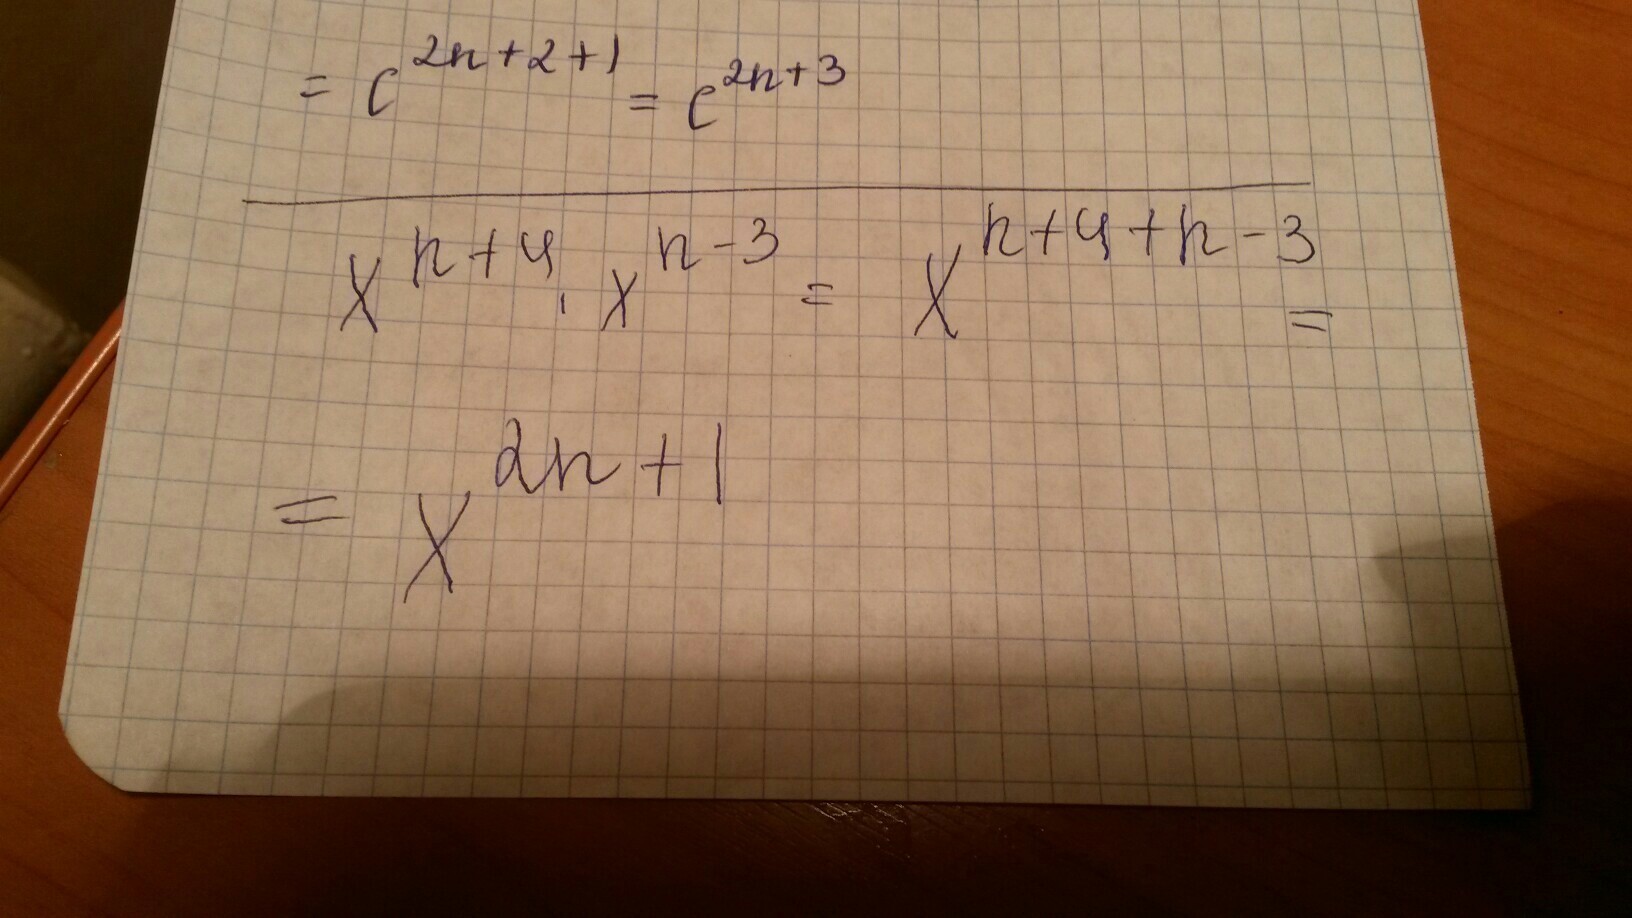 = c^{2n+2+1} = c^{2n+3}
x^{n+4} · x^{n-3} = x^{n+4+n-3} =
= x^{2n+1}